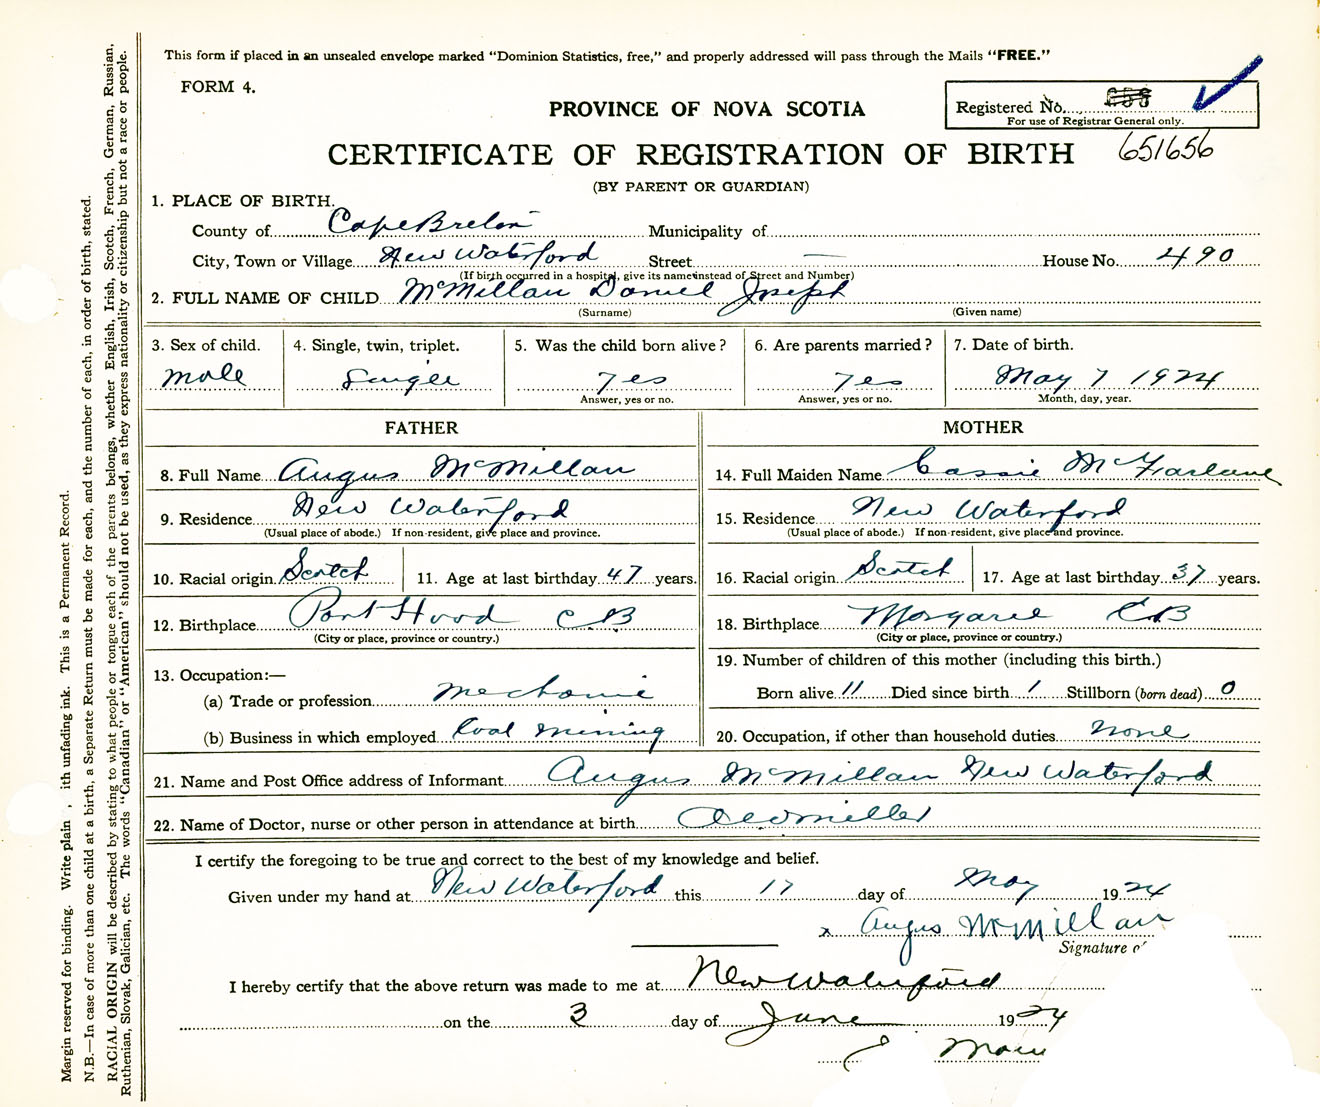 This form if placed in an unsealed envelope marked "Dominion Statistics, free," and properly addressed will pass through the Mails "FREE."
FORM 4.
PROVINCE OF NOVA SCOTIA
Registered No.
For use of Registrar General only.
CERTIFICATE OF REGISTRATION OF BIRTH 651656
(BY PARENT OR GUARDIAN)
1. PLACE OF BIRTH.
County of Cape Breton Municipality of
City, Town or Village New Waterford Street — House No. 490
(If birth occurred in a hospital, give its name instead of Street and Number)
2. FULL NAME OF CHILD McMillan Daniel Joseph
(Surname) (Given name)
3. Sex of child. 4. Single, twin, triplet. 5. Was the child born alive? 6. Are parents married? 7. Date of birth.
Male Single Yes Yes May 7 1924
Answer, yes or no. Answer, yes or no. Month, day, year.
FATHER MOTHER
8. Full Name Angus McMillan 14. Full Maiden Name Cassie McFarlane
9. Residence New Waterford 15. Residence New Waterford
(Usual place of abode.) If non-resident, give place and province. (Usual place of abode.) If non-resident, give place and province.
10. Racial origin Scotch 11. Age at last birthday 47 years. 16. Racial origin Scotch 17. Age at last birthday 37 years.
12. Birthplace Port Hood C.B 18. Birthplace Margaree C.B
(City or place, province or country.) (City or place, province or country.)
13. Occupation:— 19. Number of children of this mother (including this birth.)
(a) Trade or profession Mechanic Born alive 11 Died since birth 1 Stillborn (born dead) 0
(b) Business in which employed Coal mining 20. Occupation, if other than household duties None
21. Name and Post Office address of Informant Angus McMillan New Waterford
22. Name of Doctor, nurse or other person in attendance at birth
I certify the foregoing to be true and correct to the best of my knowledge and belief.
Given under my hand at New Waterford this 17 day of May 1924
x Angus McMillan
Signature of
I hereby certify that the above return was made to me at New Waterford
on the 3 day of June 1924
Margin reserved for binding. Write plain , ith unfading ink. This is a Permanent Record.
N.B.—In case of more than one child at a birth, a Separate Return must be made for each, and the number of each, in order of birth, stated.
RACIAL ORIGIN will be described by stating to what people or tongue each of the parents belongs, whether English, Irish, Scotch, French, German, Russian,
Ruthenian, Slovak, Galician, etc. The words "Canadian" or "American" should not be used, as they express nationality or citizenship but not a race or people.